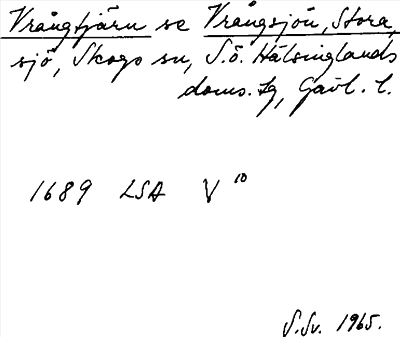 Vrångtjärn se Vrångsjön, Stora,
sjö, Skogs sn, S.ö. Hälsinglands
doms. lg, Gävl. l.
1689 LSA V 10
S.Sv. 1965.